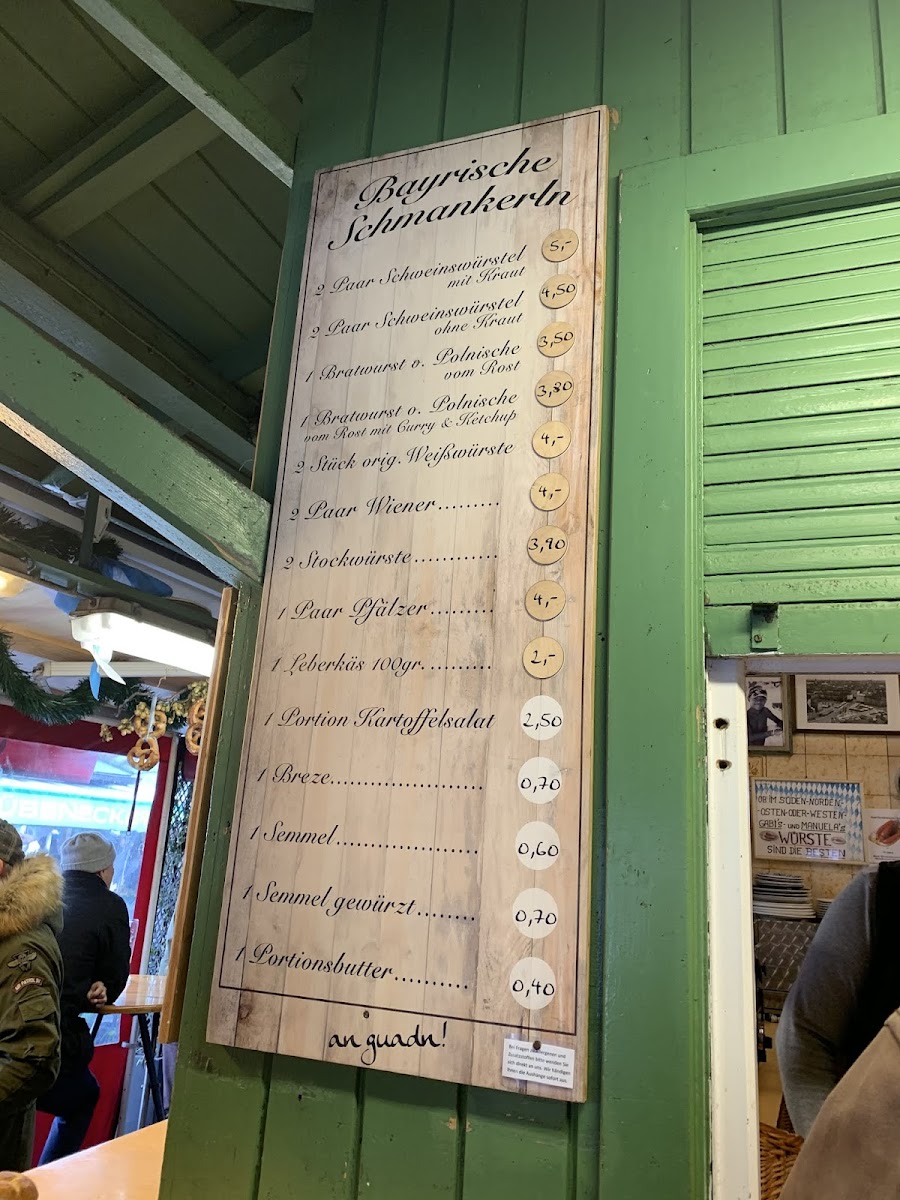 Bayrische
Schmankerln
2 Paar Schweinswürstel 5,-
mit Kraut
2 Paar Schweinswürstel 4,50
ohne Kraut
1 Bratwurst o. Polnische 3,50
vom Rost
1 Bratwurst o. Polnische 3,80
vom Rost mit Curry & Ketchup
2 Stück orig. Weißwürste 4,-
2 Paar Wiener......... 4,-
2 Stockwürste............ 3,90
1 Paar Pfälzer......... 4,-
1 Leberkäs 100gr.......... 2,-
1 Portion Kartoffelsalat 2,50
1 Breze...................... 0,70
1 Semmel..................... 0,60
1 Semmel gewürzt........ 0,70
1 Portionsbutter.......... 0,40
an guadn!
Bei Fragen zu Allergenen und
Zusatzstoffen bitte wenden Sie
sich direkt an uns. Wir händigen
Ihnen die Aushänge sofort aus.
OB IM SÜDEN-NORDEN-
OSTEN-ODER-WESTEN-
GABI'S- UND MANUELA'S
WÜRSTE
SIND DIE BESTEN